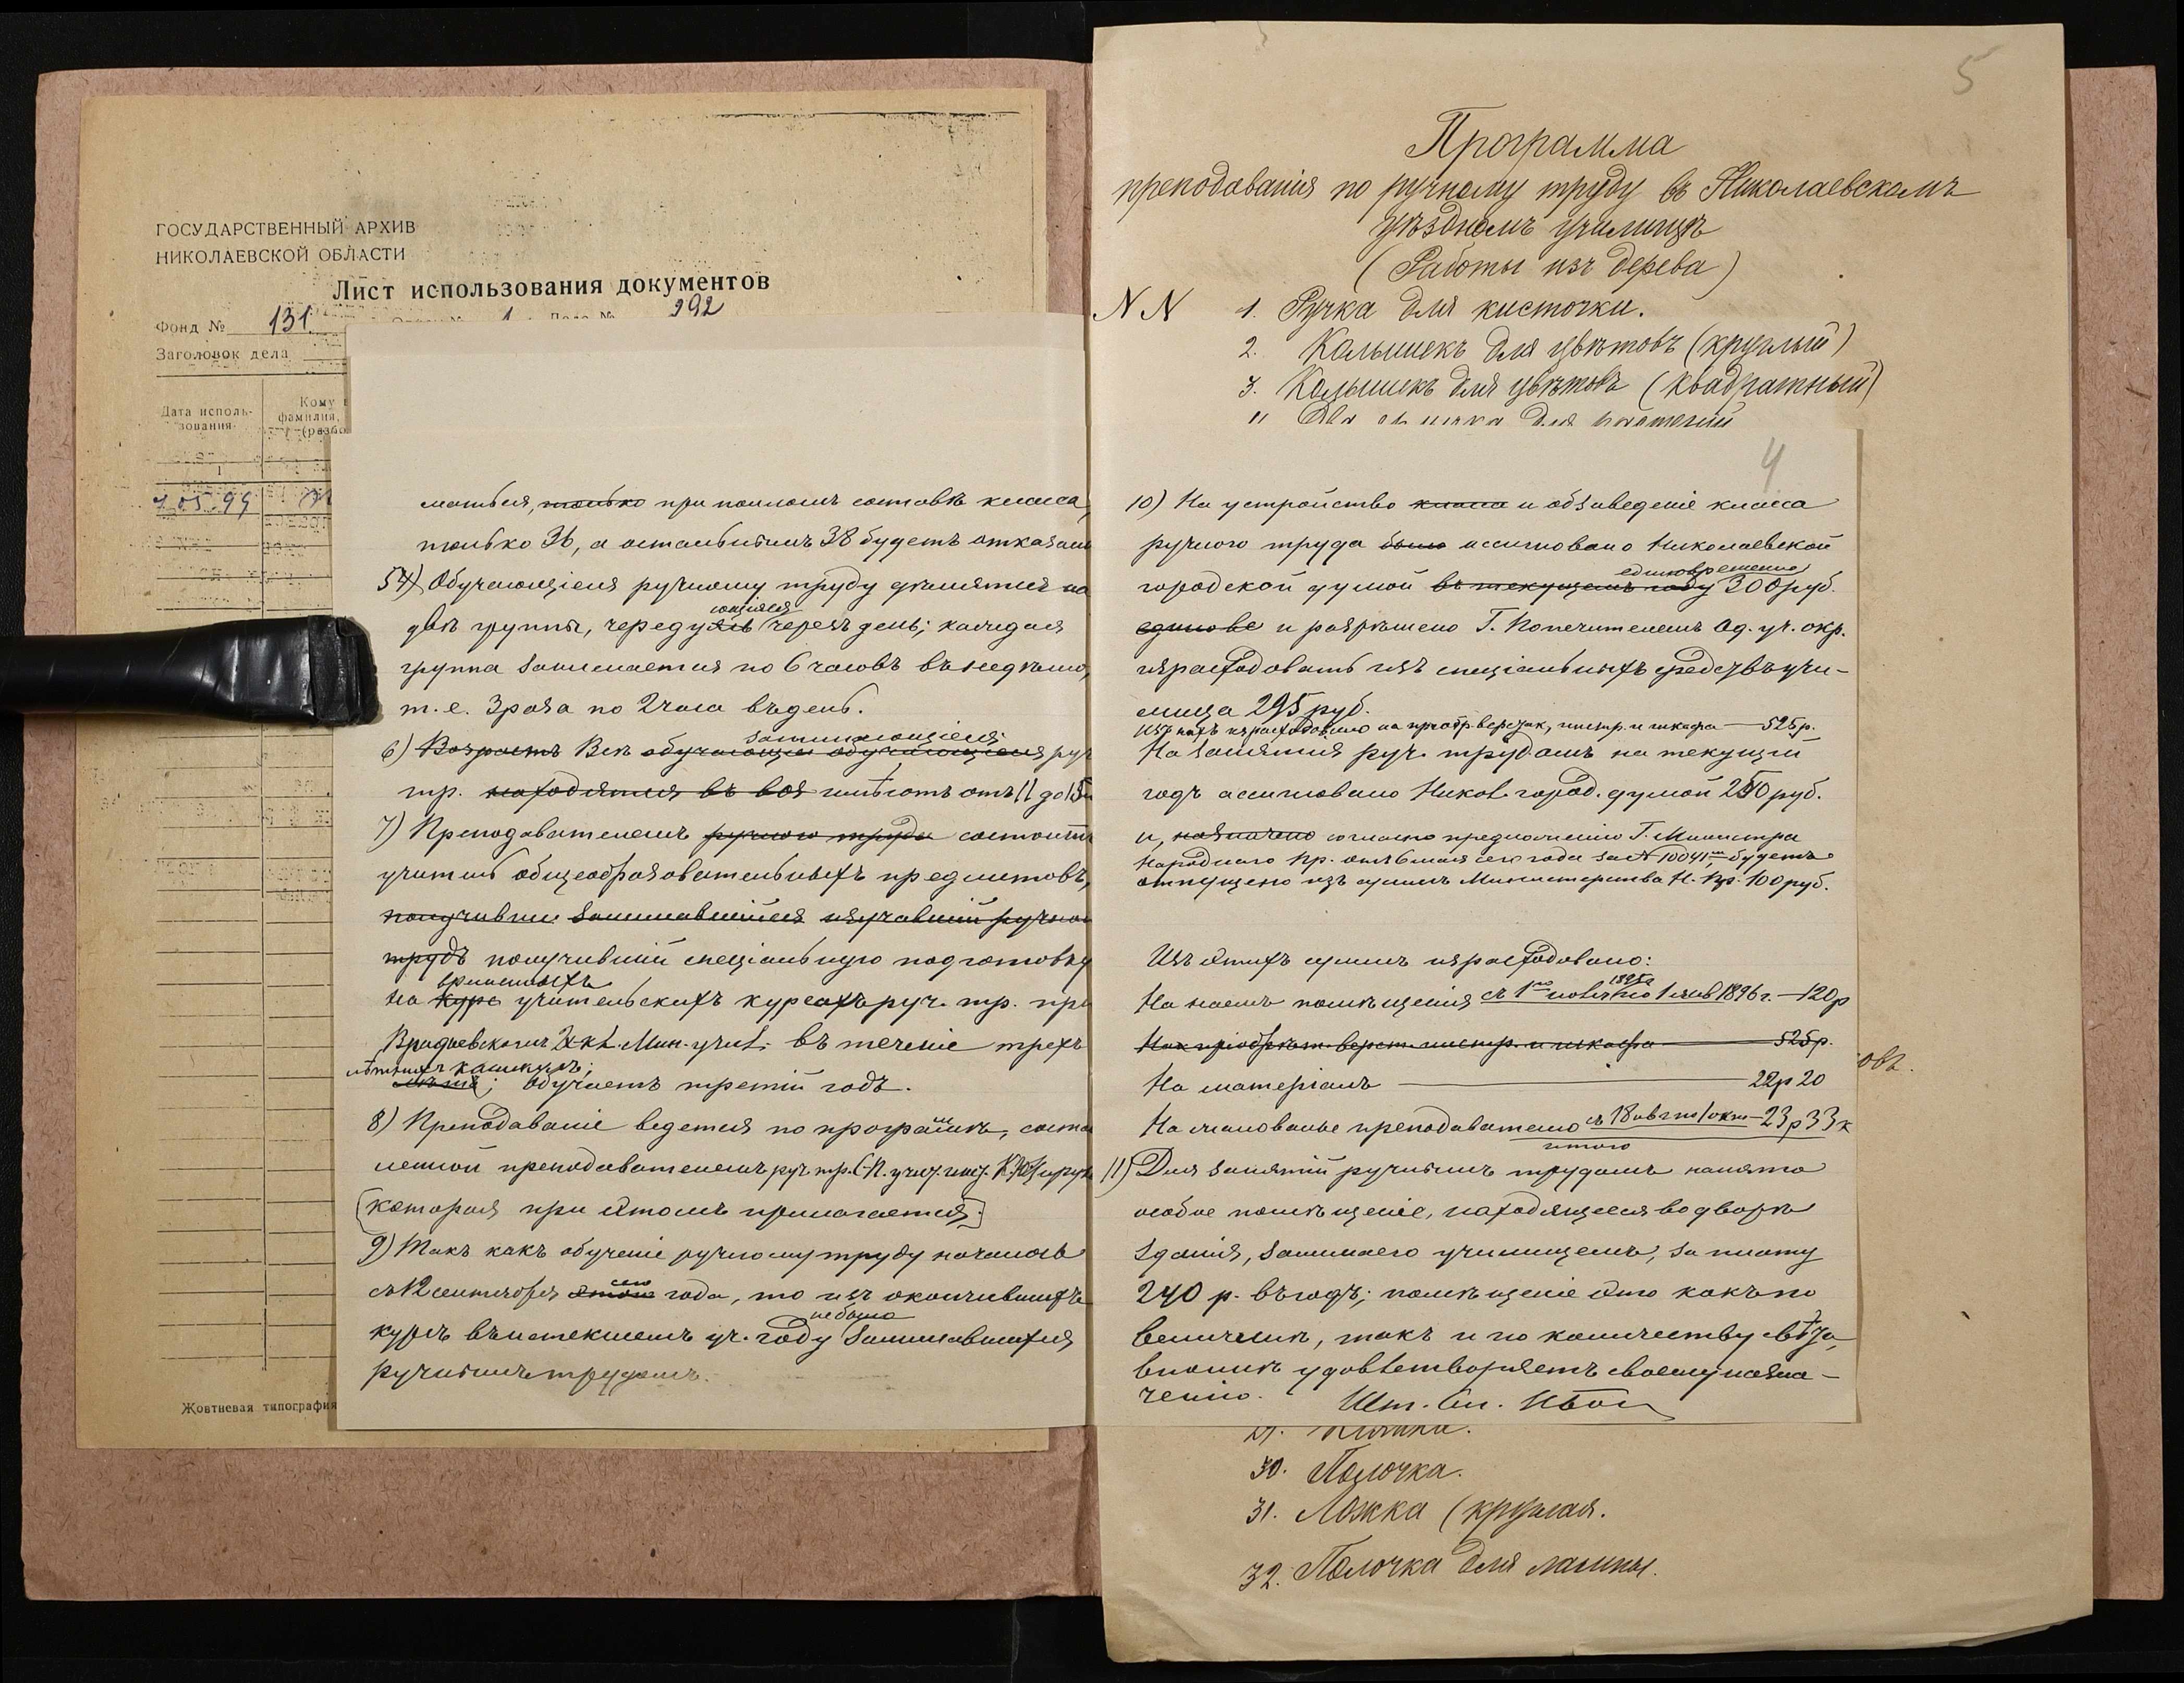 ГОСУДАРСТВЕННЫЙ АРХИВ
НИКОЛАЕВСКОЙ ОБЛАСТИ
Лист использования документов
Фонд № 131 1 292
Заголовок дела
Дата исполь-
зования
Кому
фамилия,
1
7.05.99
Жовтневая типография
маться, только при полномъ составѣ класса,
только 36, а остальнымъ 38 будетъ отказано
54) Обучающіеся ручному труду дѣлятся на
ющіяся
двѣ группы, череду черезъ день; каждая
группа занимается по 6 часовъ въ недѣлю,
т. е. 3 раза по 2 часа въ день.
занимающіеся
6) Возрастъ Всѣ обучающіе обучающіеся руч
тр. находятся въ воз имѣютъ отъ 11 до 15
7) Преподавателемъ ручного труда состоитъ
учитель общеобразовательныхъ предметовъ,
получивши занимавшійся изучавшій ручной
трудъ получившій спеціальную подготовку
временныхъ
на курс учительскихъ курсахъ руч. тр. при
2хкл. Мин. учил. въ теченіе трехъ
лѣтнихъ каникулъ;
обучаетъ третій годъ.
8) Преподаваніе ведется по программѣ, соста
ленной преподавателемъ руч. тр. С-П. учит. инст. К. Ю. Цируль
[которая при этомъ прилагается.]
9) Такъ какъ обученіе ручному труду началось
сего
съ 12 сентября этого года, то изъ окончившихъ
не было
курсъ въ истекшемъ уч. году занимавшихся
ручнымъ трудомъ.
5
Программа
преподаванія по ручному труду въ Николаевскомъ
уѣздномъ училищѣ
(Работы изъ дерева)
N N 1. Ручка для кисточки.
2. Колышекъ для цвѣтовъ (круглый)
3. Колышекъ для цвѣтовъ (квадратный)
4
10) На устройство класса и обзаведеніе класса
ручного труда было ассигновано Николаевской
единовременно
городской думой въ текущемъ году 300 руб.
единовѣ и разрѣшено Г. Попечителемъ Од. уч. окр.
израсходовать изъ спеціальныхъ средствъ учи-
лища 295 руб.
Изъ нихъ израсходовано на пріобр. верстак, инстр. и шкафа — 525 р.
На занятія руч. трудомъ на текущій
годъ ассигновано Никол. город. думой 250 руб.
и, назначено согласно предложенію Г. Министра
Народнаго Пр. отъ 6 мая сего года за № 10041, будетъ
отпущено изъ суммъ Министерства Н. Пр. 100 руб.
Изъ этихъ суммъ израсходовано:
1895 г.
На наемъ помѣщенія съ 1го по 1 янв 1896 г. — 120 р
На пріобрѣт. верст. инстр. и шкафа — 525 р.
На матеріалъ — 22 р 20
На жалованье преподавателю съ 18 авг по 1 окт — 23 р 33 к
итого
11) Для занятій ручнымъ трудомъ нанято
особое помѣщеніе, находящееся во дворѣ
зданія, занимаего училищемъ, за плату
240 р. въ годъ; помѣщеніе это какъ по
величинѣ, такъ и по количеству свѣта,
вполнѣ удовлетворяетъ своему назна-
ченію. Шт. См.
овъ.
30. Полочка.
31. Ложка (круглая.
32. Полочка для лампы.